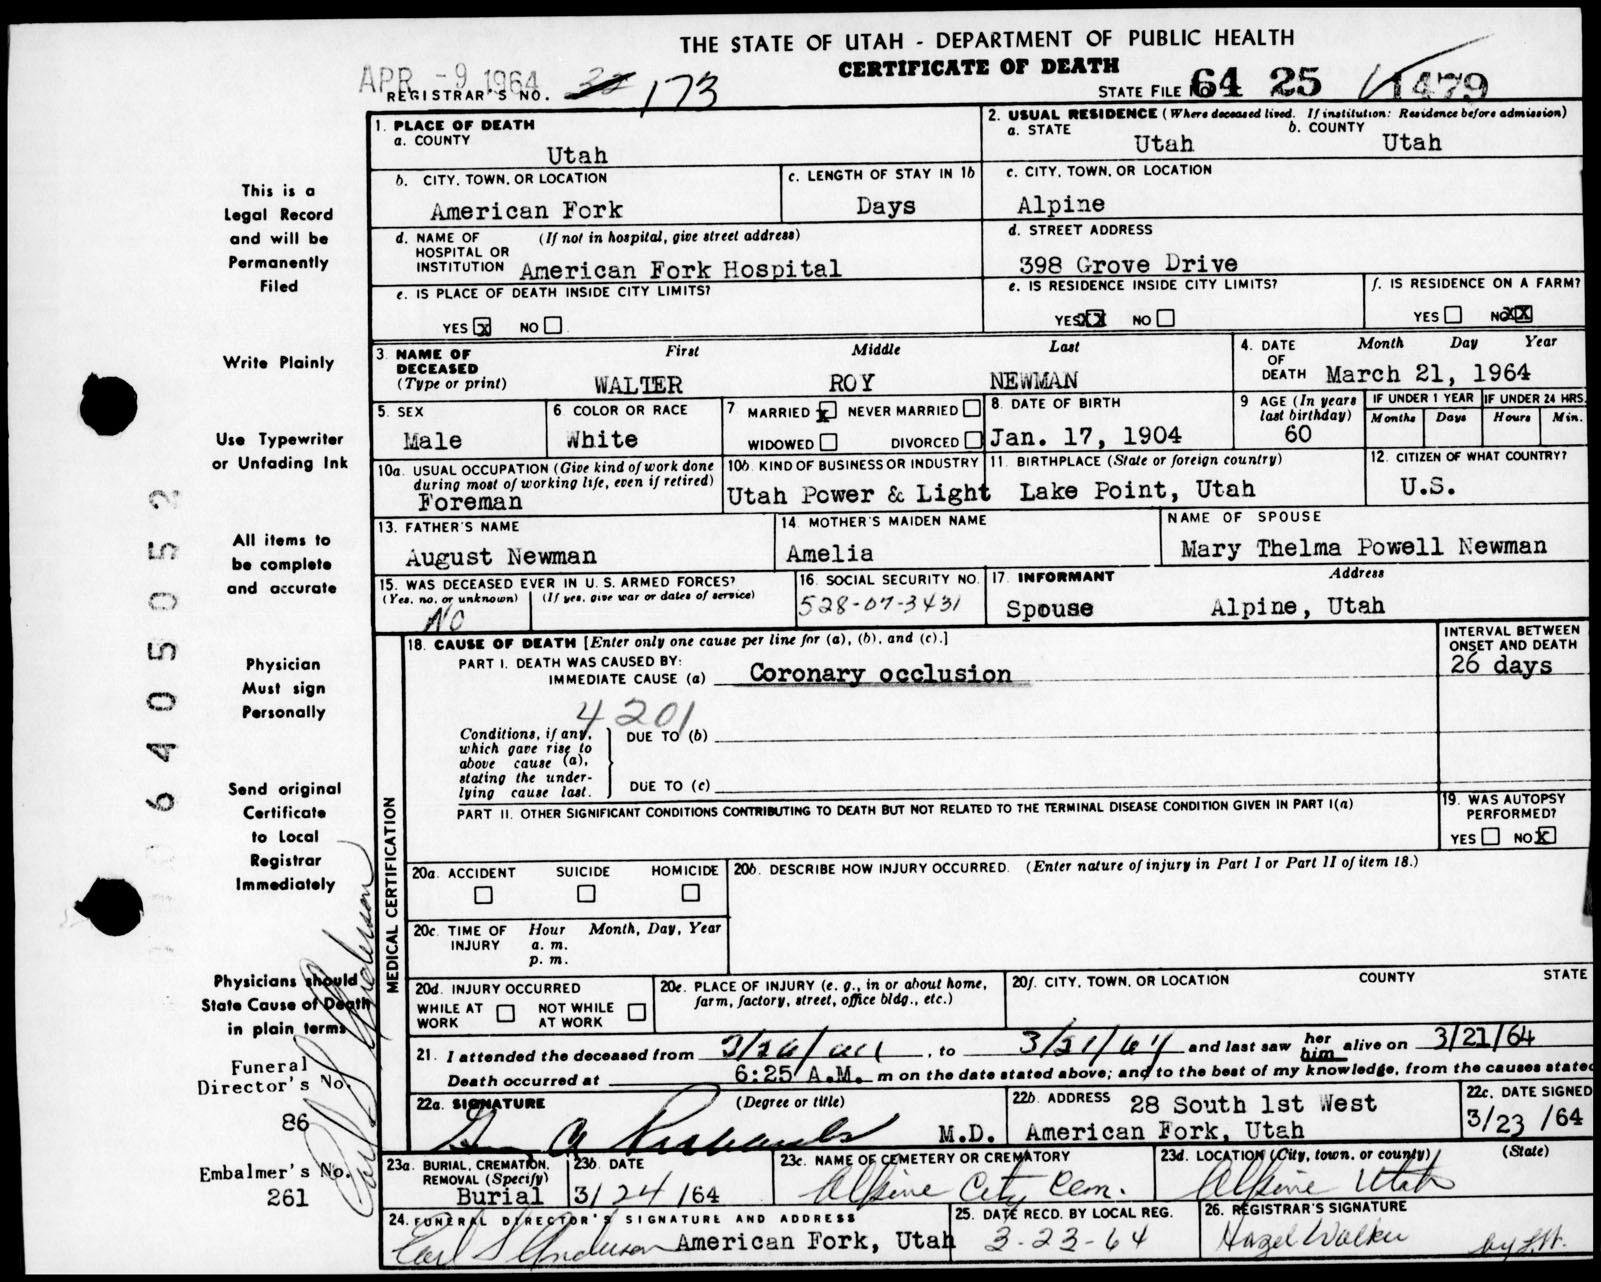 THE STATE OF UTAH - DEPARTMENT OF PUBLIC HEALTH
CERTIFICATE OF DEATH
APR -9 1964
REGISTRAR'S NO. 173
STATE FILE NO. 64 25 1479
This is a
Legal Record
and will be
Permanently
Filed
Write Plainly
Use Typewriter
or Unfading Ink
All items to
be complete
and accurate
Physician
Must sign
Personally
Send original
Certificate
to Local
Registrar
Immediately
Physicians should
State Cause of Death
in plain terms
Funeral
Director's No.
86
Embalmer's No.
261
Earl S Anderson
6405052
1. PLACE OF DEATH
a. COUNTY
Utah
2. USUAL RESIDENCE (Where deceased lived. If institution: Residence before admission)
a. STATE b. COUNTY
Utah Utah
b. CITY, TOWN, OR LOCATION
American Fork
c. LENGTH OF STAY IN 1b
Days
c. CITY, TOWN, OR LOCATION
Alpine
d. NAME OF HOSPITAL OR INSTITUTION (If not in hospital, give street address)
American Fork Hospital
d. STREET ADDRESS
398 Grove Drive
e. IS PLACE OF DEATH INSIDE CITY LIMITS?
YES X NO
e. IS RESIDENCE INSIDE CITY LIMITS?
YES XX NO
f. IS RESIDENCE ON A FARM?
YES NO XX
3. NAME OF DECEASED (Type or print)
First Middle Last
WALTER ROY NEWMAN
4. DATE OF DEATH Month Day Year
March 21, 1964
5. SEX
Male
6. COLOR OR RACE
White
7. MARRIED X NEVER MARRIED
WIDOWED DIVORCED
8. DATE OF BIRTH
Jan. 17, 1904
9. AGE (In years last birthday)
60
IF UNDER 1 YEAR
Months Days
IF UNDER 24 HRS.
Hours Min.
10a. USUAL OCCUPATION (Give kind of work done during most of working life, even if retired)
Foreman
10b. KIND OF BUSINESS OR INDUSTRY
Utah Power & Light
11. BIRTHPLACE (State or foreign country)
Lake Point, Utah
12. CITIZEN OF WHAT COUNTRY?
U.S.
13. FATHER'S NAME
August Newman
14. MOTHER'S MAIDEN NAME
Amelia
NAME OF SPOUSE
Mary Thelma Powell Newman
15. WAS DECEASED EVER IN U. S. ARMED FORCES?
(Yes, no, or unknown) (If yes, give war or dates of service)
No
16. SOCIAL SECURITY NO.
528-07-3431
17. INFORMANT Address
Spouse Alpine, Utah
MEDICAL CERTIFICATION
18. CAUSE OF DEATH [Enter only one cause per line for (a), (b), and (c).]
PART I. DEATH WAS CAUSED BY:
IMMEDIATE CAUSE (a) Coronary occlusion
INTERVAL BETWEEN ONSET AND DEATH
26 days
4201
Conditions, if any, which gave rise to above cause (a), stating the underlying cause last.
DUE TO (b)
DUE TO (c)
PART II. OTHER SIGNIFICANT CONDITIONS CONTRIBUTING TO DEATH BUT NOT RELATED TO THE TERMINAL DISEASE CONDITION GIVEN IN PART I(a)
19. WAS AUTOPSY PERFORMED?
YES NO X
20a. ACCIDENT SUICIDE HOMICIDE
20b. DESCRIBE HOW INJURY OCCURRED. (Enter nature of injury in Part I or Part II of item 18.)
20c. TIME OF INJURY Hour Month, Day, Year
a. m.
p. m.
20d. INJURY OCCURRED
WHILE AT WORK NOT WHILE AT WORK
20e. PLACE OF INJURY (e. g., in or about home, farm, factory, street, office bldg., etc.)
20f. CITY, TOWN, OR LOCATION COUNTY STATE
21. I attended the deceased from , to 3/21/64 and last saw her him alive on 3/21/64
Death occurred at 6:25 A.M. m on the date stated above; and to the best of my knowledge, from the causes stated
22a. SIGNATURE (Degree or title)
M.D.
22b. ADDRESS 28 South 1st West
American Fork, Utah
22c. DATE SIGNED
3/23/64
23a. BURIAL, CREMATION, REMOVAL (Specify)
Burial
23b. DATE
3/24/64
23c. NAME OF CEMETERY OR CREMATORY
Alpine City Cem.
23d. LOCATION (City, town, or county) (State)
Alpine Utah
24. FUNERAL DIRECTOR'S SIGNATURE AND ADDRESS
Earl S Anderson American Fork, Utah
25. DATE RECD. BY LOCAL REG.
3-23-64
26. REGISTRAR'S SIGNATURE
Hazel Walker